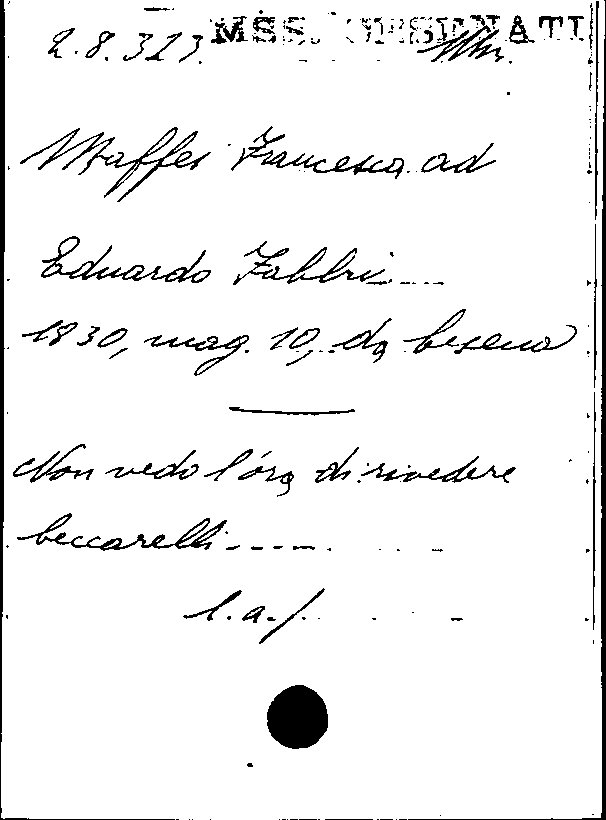 MSS. CESENATI
2.8.323.
Maffei Francesca ad
Eduardo Fabbri
1830, mag. 10, da Cesena
Non vedo l'ora di rivedere
Ceccarelli -----
l.a.f.